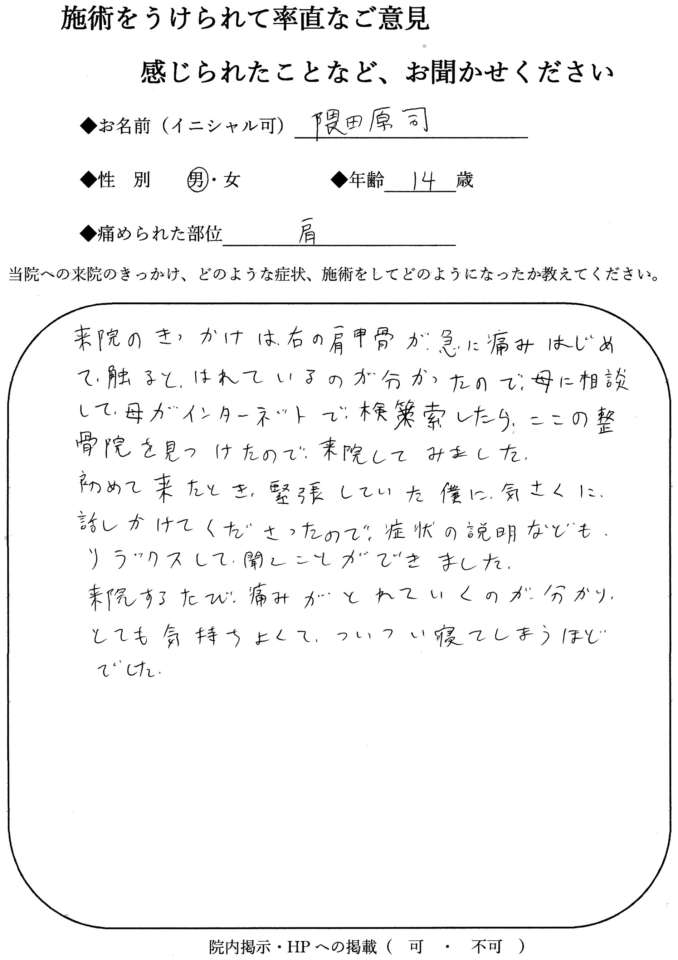 施術をうけられて率直なご意見
感じられたことなど、お聞かせください
◆お名前(イニシャル可) 隈田原司
◆性 別 男・女 ◆年齢 14 歳
◆痛められた部位 肩
当院への来院のきっかけ、どのような症状、施術をしてどのようになったか教えてください。
来院のきっかけは、右の肩甲骨が、急に痛みはじめ
て、触ると、はれているのが分かったので、母に相談
して、母がインターネットで、検索したら、ここの整
骨院を見つけたので、来院してみました。
初めて来たとき、緊張していた僕に、気さくに、
話しかけてくださったので、症状の説明なども、
リラックスして、聞くことができました。
来院するたび、痛みがとれていくのが、分かり、
とても気持ちよくて、ついつい寝てしまうほど
でした。
院内掲示・HPへの掲載( 可 ・ 不可 )